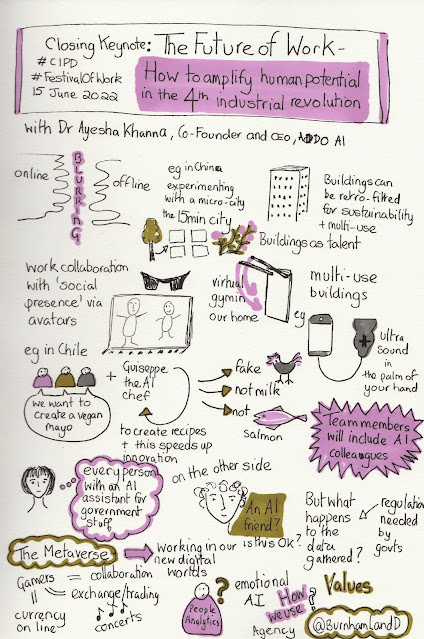 Closing Keynote: The Future of Work -
#CIPD
#FestivalOfWork
15 June 2022
How to amplify human potential
in the 4th industrial revolution
with Dr Ayesha Khanna, Co-Founder and CEO, ADDO AI
online
BLURRING
offline
eg in China
experimenting
with a micro-city
the 15min city
Buildings can
be retro-fitted
for sustainability
+ multi-use
Buildings as talent
work collaboration
with 'social
presence' via
avatars
virtual
gym in
our home
multi-use
buildings
eg
ultra
sound
in
the palm of
your hand
eg in Chile
we want to
create a vegan
mayo
+ Guiseppe
the AI
chef
to create recipes
+ this speeds up
innovation
fake
not milk
not
salmon
Team members
will include AI
colleagues
every person
with an AI
assistant for
government
stuff
on the other side
An AI
friend?
is this OK?
But what
happens
to the
data
gathered?
regulation
needed
by
govts
The Metaverse
working in our
new digital
worlds
Gamers = collaboration
= exchange/trading
currency
on line
concerts
People
Analytics
emotional
AI
How
we use
Agency
?
Values
@BurnhamLandD